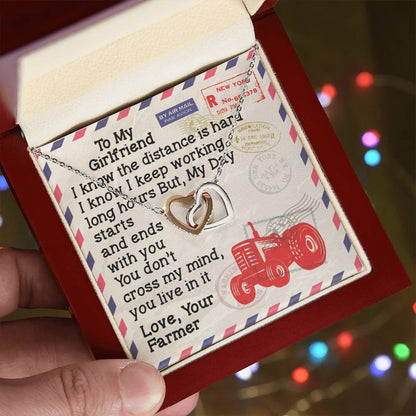 BY AIR MAIL
PAR AVION
NEW YORK
R
To My
Girlfriend
I know the distance is hard
I know I keep working
long hours But, My Day
starts
and ends
with you
You don't
cross my mind,
you live in it
Love, Your
Farmer
NEW YORK